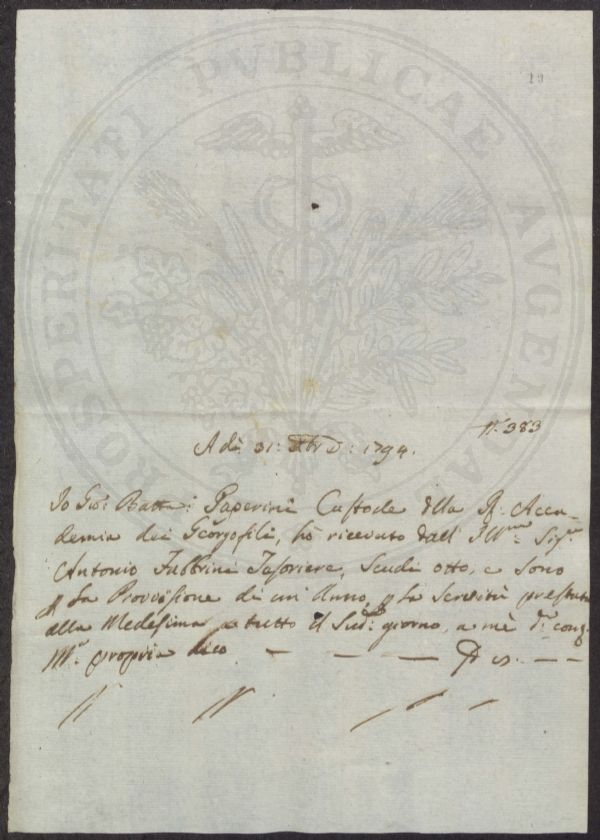 PROSPERITATI PVBLICAE AVGENDAE
10
N.º 383
A dì 31: Xbre: 1794.
Io Gio: Batta: Paperini Custode della R: Acca-
demia dei Georgofili, hò ricevuto dall' Ill.mo Sig.re
Antonio Fabbrini Tesoriere, Scudi otto, e sono
p. la Provvisione di un' Anno, p. la Servitù prestata
alla Medesima a tutto il Sud.º giorno, a mè d.º cont.
M.º propria dico — — — —